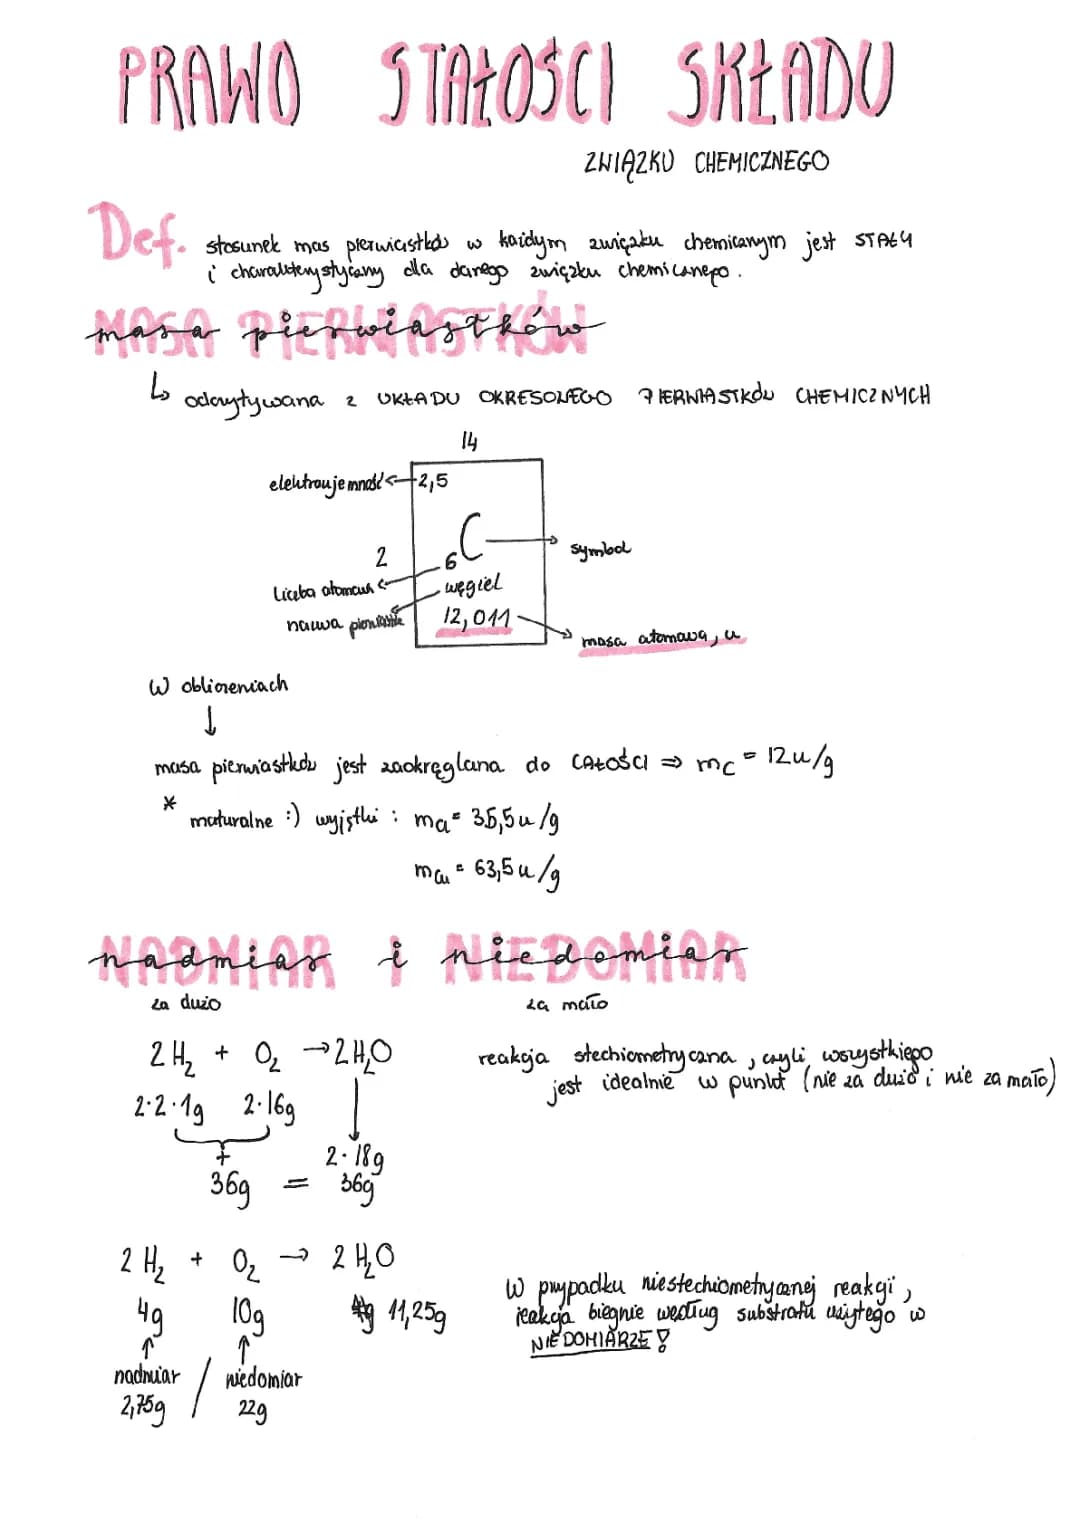 PRAWO STAŁOŚCI SKŁADU
ZWIĄZKU CHEMICZNEGO
Def. stosunek mas pierwiastków w każdym związku chemicznym jest STAŁY
i charakterystyczny dla danego związku chemicznego.
MASA PIERWIASTKÓW
↳ odczytywana z UKŁADU OKRESOWEGO PIERWIASTKÓW CHEMICZNYCH
14
elektroujemność ← 2,5
C → symbol
2
6
liczba atomowa
węgiel
nazwa pierwiastka
12,011
masa atomowa, u
W obliczeniach
↓
masa pierwiastków jest zaokrąglana do CAŁOŚCI ⇒ mC = 12u/g
* maturalne :) wyjątki : mCl = 35,5u/g
mCu = 63,5u/g
NADMIAR i NIEDOMIAR
za dużo za mało
2H₂ + O₂ → 2H₂O
2·2·1g 2·16g
+
2·18g
36g = 36g
reakcja stechiometryczna, czyli wszystkiego
jest idealnie w punkt (nie za dużo i nie za mało)
2H₂ + O₂ → 2H₂O
4g 10g 11,25g
↑ ↑
nadmiar / niedomiar
2,75g 22g
W przypadku niestechiometrycznej reakcji,
reakcja biegnie według substratu użytego w
NIEDOMIARZE!